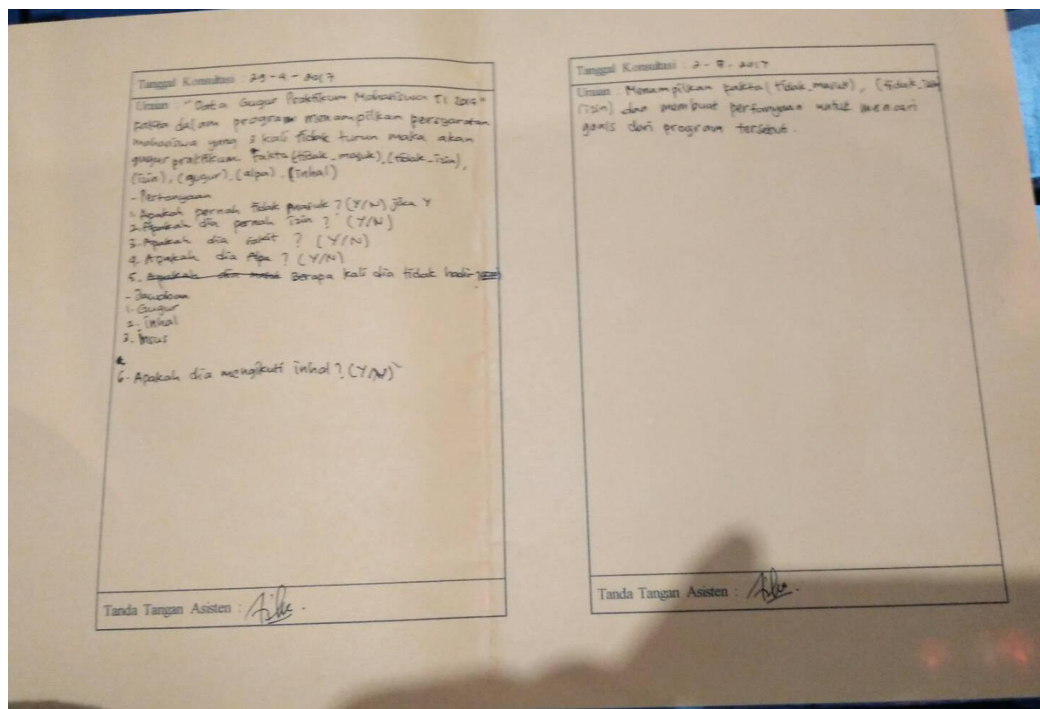 Tanggal Konsultasi : 29-4-2017
Uraian : "Data Gugur Praktikum Mahasiswa TI 2015"
fakta dalam program menampilkan persyaratan
mahasiswa yang 3 kali tidak turun maka akan
gugur praktikum fakta (tidak_masuk), (tidak_izin),
(izin), (gugur), (alpa), (inhal)
- Pertanyaan
1. Apakah pernah tidak masuk ? (Y/N) jika Y
2. Apakah dia pernah izin ? (Y/N)
3. Apakah dia sakit ? (Y/N)
4. Apakah dia Alpa ? (Y/N)
5. Apakah dia Berapa kali dia tidak hadir
- Jawaban
1. Gugur
2. inhal
3.
6. Apakah dia mengikuti inhal ? (Y/N)
Tanda Tangan Asisten :
Tanggal Konsultasi : 2-5-2017
Uraian : Menampilkan fakta (tidak_masuk), (tidak_izin)
(izin) dan membuat pertanyaan untuk mencari
goals dari program tersebut.
Tanda Tangan Asisten :